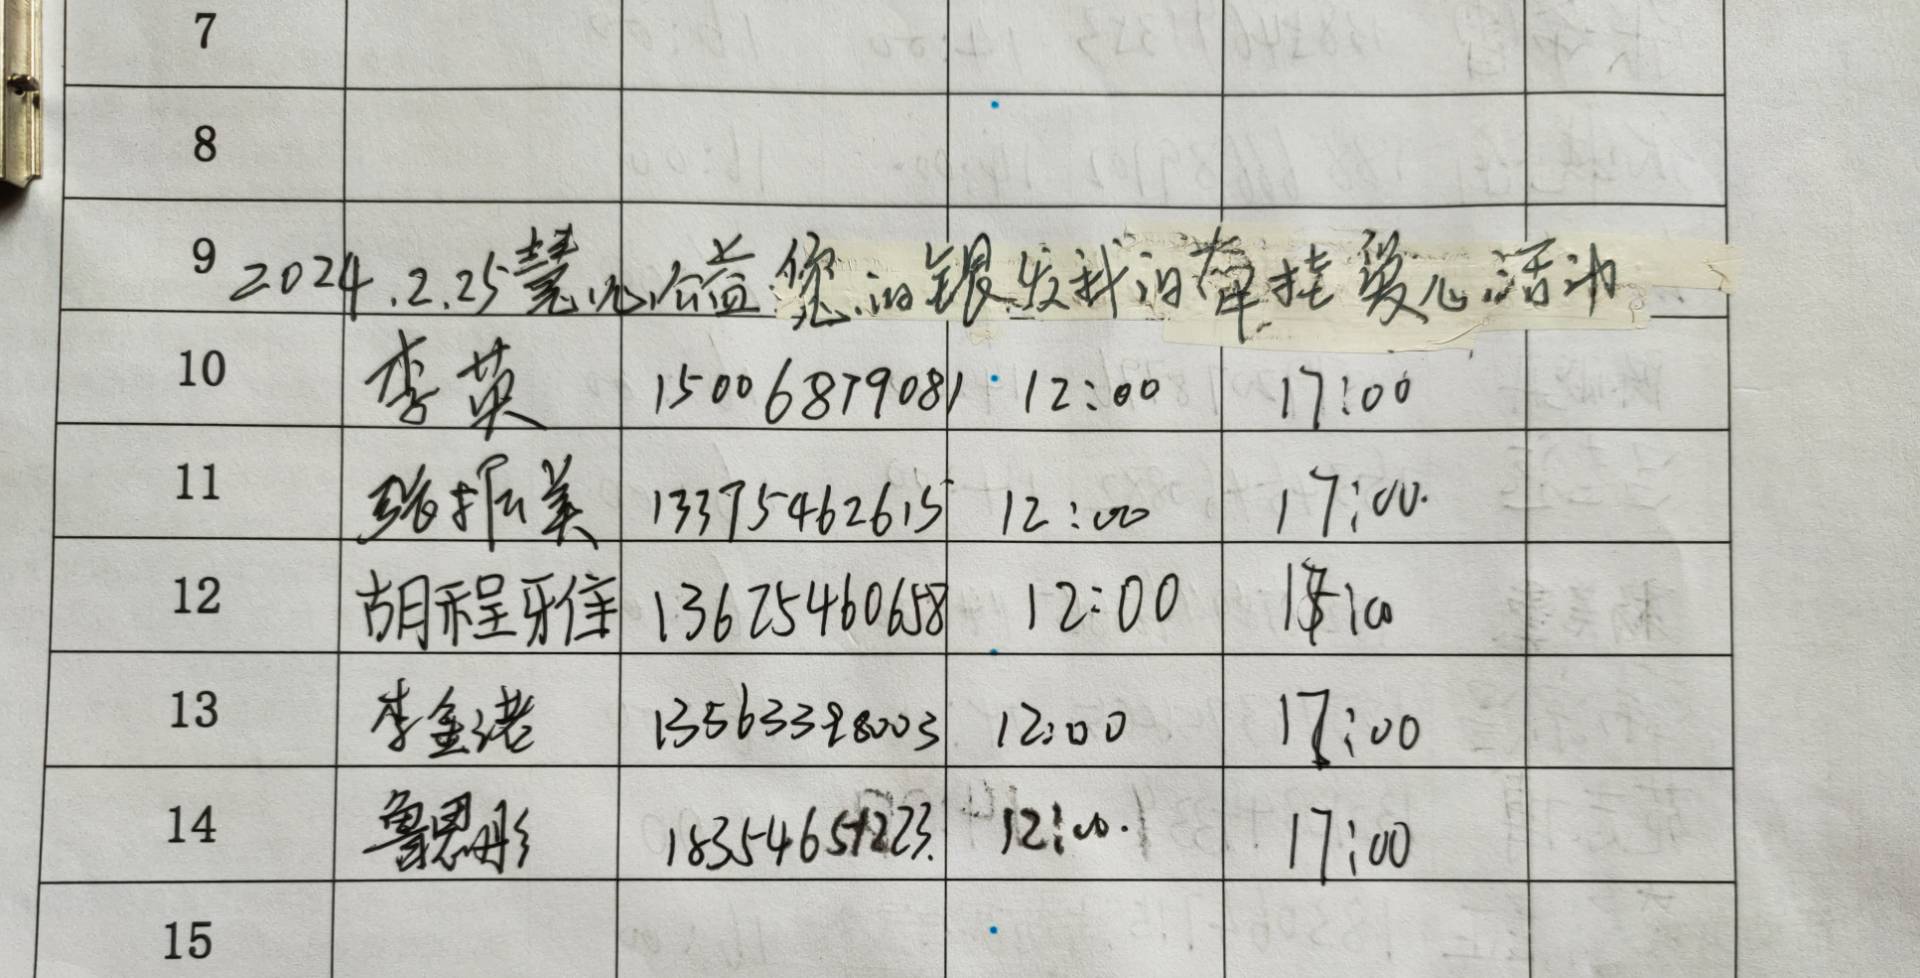 7
8
9 2024.2.25慧心公益"您的银发我的牵挂"爱心活动
10 李英 15006879081 12:00 17:00
11 张振美 13375462615 12:00 17:00.
12 胡程雅 13675460658 12:00 :00
13 李金 13563398003 12:00 17:00
14 鲁恩彤 18354651223. 12:00. 17:00
15